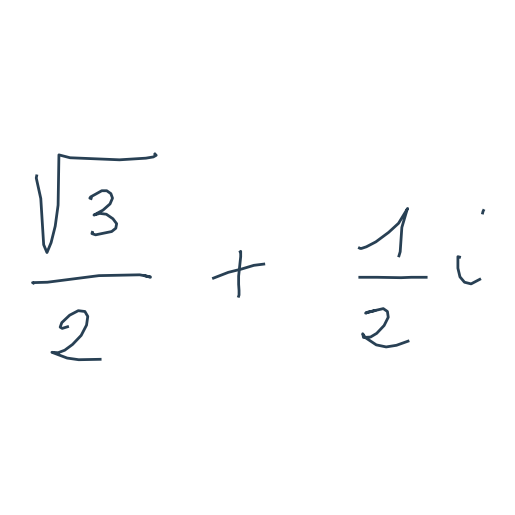 \frac{\sqrt{3}}{2} + \frac{1}{2} i